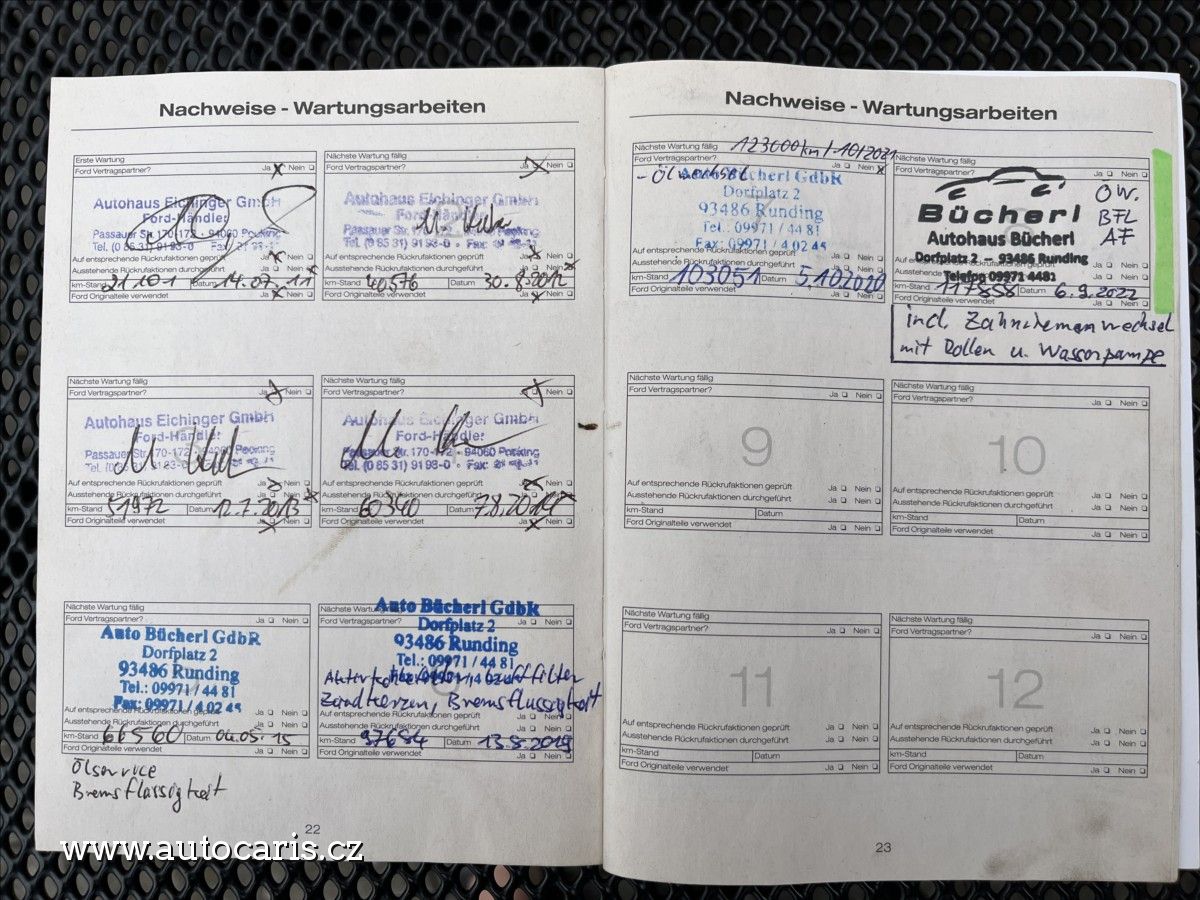 Nachweise - Wartungsarbeiten
Erste Wartung
Ford Vertragspartner? Ja Nein
Autohaus Eichinger GmbH
Ford-Händler
Passauer Str. 170-172 · 94060 Pocking
Tel. (0 85 31) 91 93-0 Fax
Auf entsprechende Rückrufaktionen geprüft Ja Nein
Ausstehende Rückrufaktionen durchgeführt Ja Nein
km-Stand 21101 Datum 14.07.11
Ford Originalteile verwendet Ja Nein
Nächste Wartung fällig
Ford Vertragspartner? Ja Nein
Autohaus Eichinger GmbH
Ford-Händler
Passauer Str. 170-172
Tel. (0 85 31) 91 93-0 · Fax:
Auf entsprechende Rückrufaktionen geprüft Ja Nein
Ausstehende Rückrufaktionen durchgeführt Ja Nein
km-Stand 40576 Datum 30.8.2012
Ford Originalteile verwendet Ja Nein
Nächste Wartung fällig
Ford Vertragspartner? Ja Nein
Autohaus Eichinger GmbH
Ford-Händler
Passauer Str. 170-172 · 94060 Pocking
Tel. (0 85 31) 91 93-0
Auf entsprechende Rückrufaktionen geprüft Ja Nein
Ausstehende Rückrufaktionen durchgeführt Ja Nein
km-Stand 51972 Datum 12.7.2013
Ford Originalteile verwendet Ja Nein
Nächste Wartung fällig
Ford Vertragspartner? Ja Nein
Autohaus Eichinger GmbH
Ford-Händler
Passauer Str. 170-172 · 94060 Pocking
Tel. (0 85 31) 91 93-0 · Fax:
Auf entsprechende Rückrufaktionen geprüft Ja Nein
Ausstehende Rückrufaktionen durchgeführt Ja Nein
km-Stand 60340 Datum 7.8.2014
Ford Originalteile verwendet Ja Nein
Nächste Wartung fällig
Ford Vertragspartner? Ja Nein
Auto Bücherl GdbR
Dorfplatz 2
93486 Runding
Tel.: 09971 / 44 81
Fax: 09971 / 4 02 45
Auf entsprechende Rückrufaktionen geprüft Ja Nein
Ausstehende Rückrufaktionen durchgeführt Ja Nein
km-Stand 66560 Datum 04.05.15
Ford Originalteile verwendet Ja Nein
Ölservice
Bremsflüssigkeit
Nächste Wartung fällig
Auto Bücherl GdbR
Ford Vertragspartner? Ja Nein
Dorfplatz 2
93486 Runding
Tel.: 09971 / 44 81
Luftfilter
Zündkerzen, Bremsflüssigkeit
Auf entsprechende Rückrufaktionen geprüft Ja Nein
Ausstehende Rückrufaktionen durchgeführt Ja Nein
km-Stand 97684 Datum 13.8.2019
Ford Originalteile verwendet Ja Nein
22
Nachweise - Wartungsarbeiten
Nächste Wartung fällig 123000 km / 10/2021
Ford Vertragspartner? Ja Nein
- Ölwechsel
Auto Bücherl GdbR
Dorfplatz 2
93486 Runding
Tel.: 09971 / 44 81
Fax: 09971 / 4 02 45
Auf entsprechende Rückrufaktionen geprüft Ja Nein
Ausstehende Rückrufaktionen durchgeführt Ja Nein
km-Stand 103051 Datum 5.10.2020
Ford Originalteile verwendet Ja Nein
Nächste Wartung fällig
Ford Vertragspartner? Ja Nein
Bücherl
Autohaus Bücherl
Dorfplatz 2 - 93486 Runding
Telefon 09971 4481
ÖW.
BFL
AF
km-Stand 117858 Datum 6.9.2022
Ford Originalteile verwendet Ja Nein
incl. Zahnriemenwechsel
mit Rollen u. Wasserpumpe
Nächste Wartung fällig
Ford Vertragspartner? Ja Nein
9
Auf entsprechende Rückrufaktionen geprüft Ja Nein
Ausstehende Rückrufaktionen durchgeführt Ja Nein
km-Stand Datum
Ford Originalteile verwendet Ja Nein
Nächste Wartung fällig
Ford Vertragspartner? Ja Nein
10
Auf entsprechende Rückrufaktionen geprüft Ja Nein
Ausstehende Rückrufaktionen durchgeführt Ja Nein
km-Stand Datum
Ford Originalteile verwendet Ja Nein
Nächste Wartung fällig
Ford Vertragspartner? Ja Nein
11
Auf entsprechende Rückrufaktionen geprüft Ja Nein
Ausstehende Rückrufaktionen durchgeführt Ja Nein
km-Stand Datum
Ford Originalteile verwendet Ja Nein
Nächste Wartung fällig
Ford Vertragspartner? Ja Nein
12
Auf entsprechende Rückrufaktionen geprüft Ja Nein
Ausstehende Rückrufaktionen durchgeführt Ja Nein
km-Stand Datum
Ford Originalteile verwendet Ja Nein
23
www.autocaris.cz